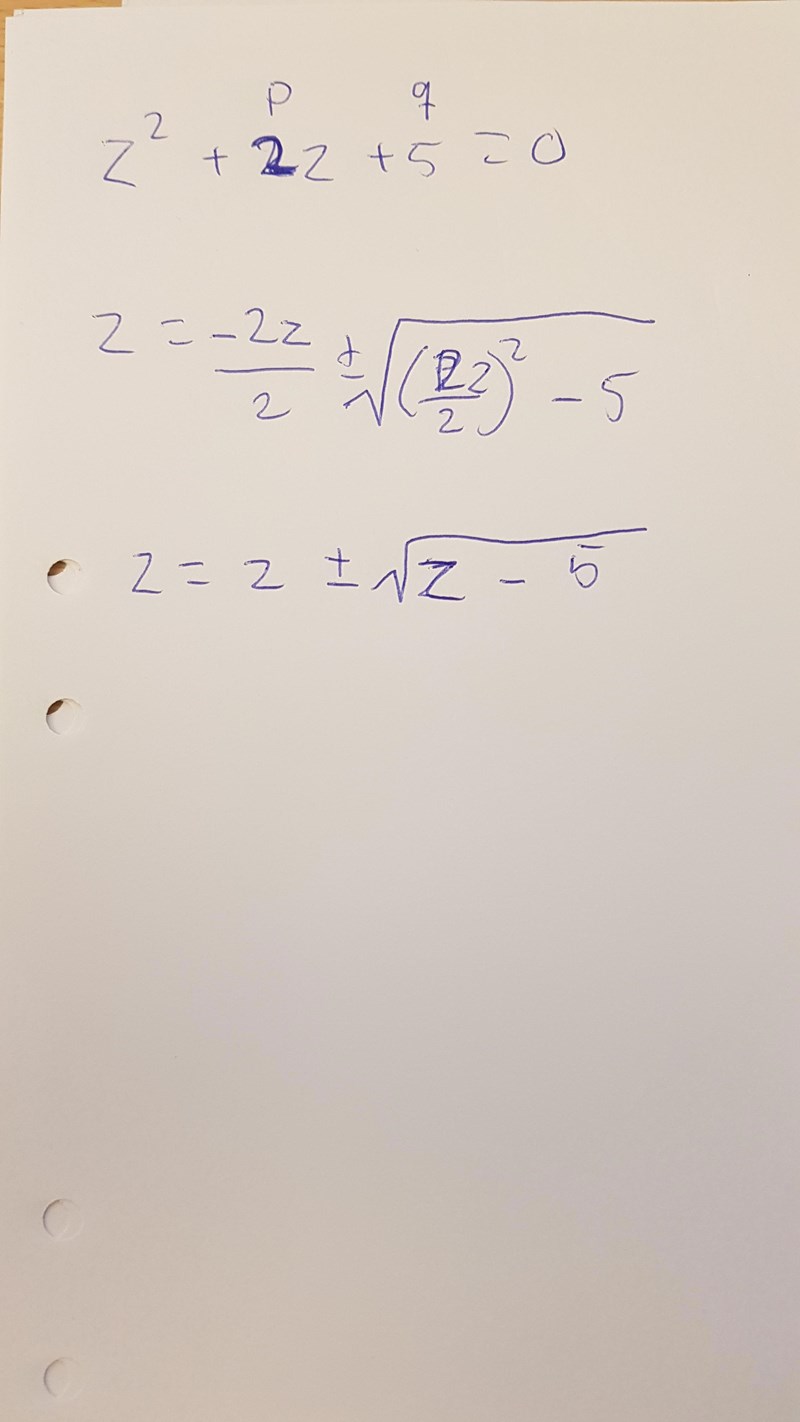 p q
z² + 2z + 5 = 0
z = -2z/2 ± √((2z/2)² - 5)
z = z ± √(z - 5)